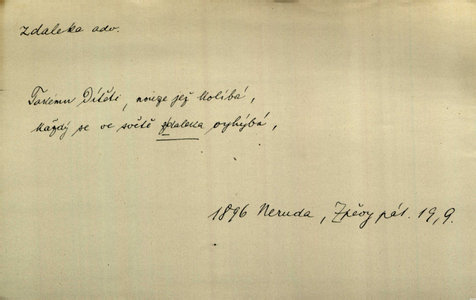 zdaleka adv.
Takému Dítěti, nouze jež kolíbá,
každý se ve světě zdaleka vyhýbá,
1896 Neruda, Zpěvy pát. 19, 9.